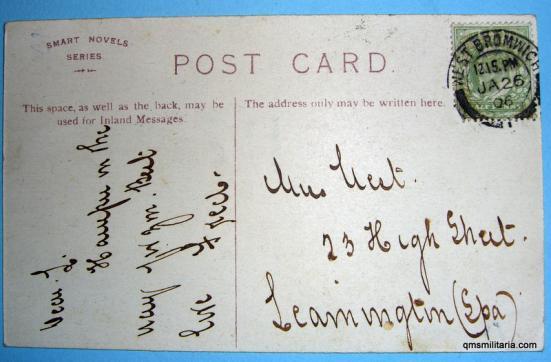 SMART NOVELS
SERIES.
POST CARD.
This space, as well as the back, may be
used for Inland Messages.
The address only may be written here.
WEST BROMWICH
12.15. PM
JA 26
06
Dear
in the
way
Love
Miss West.
23 High Street.
Leamington (Spa)
qmsmilitaria.com